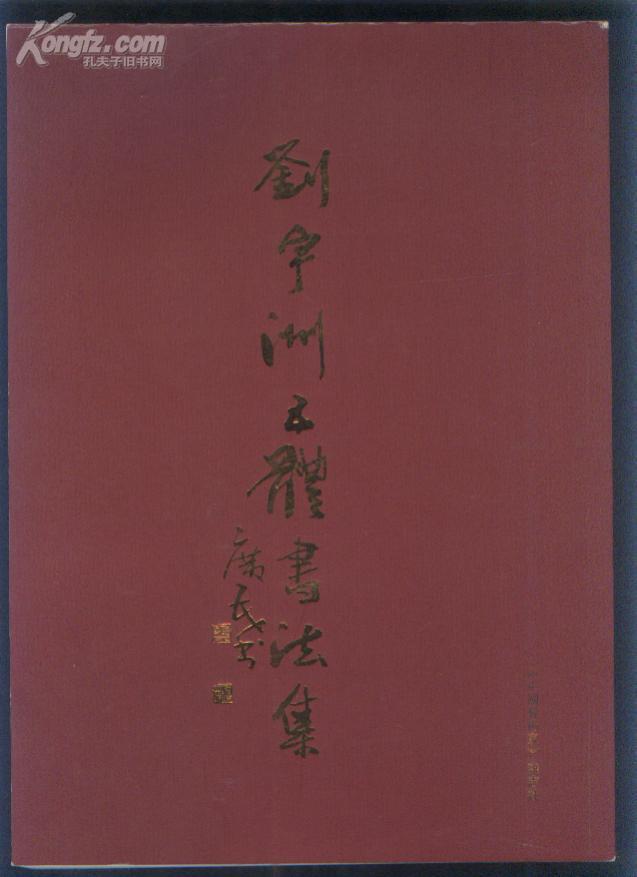 Kongfz.com
孔夫子旧书网
劉宇洲五體書法集
廣民書